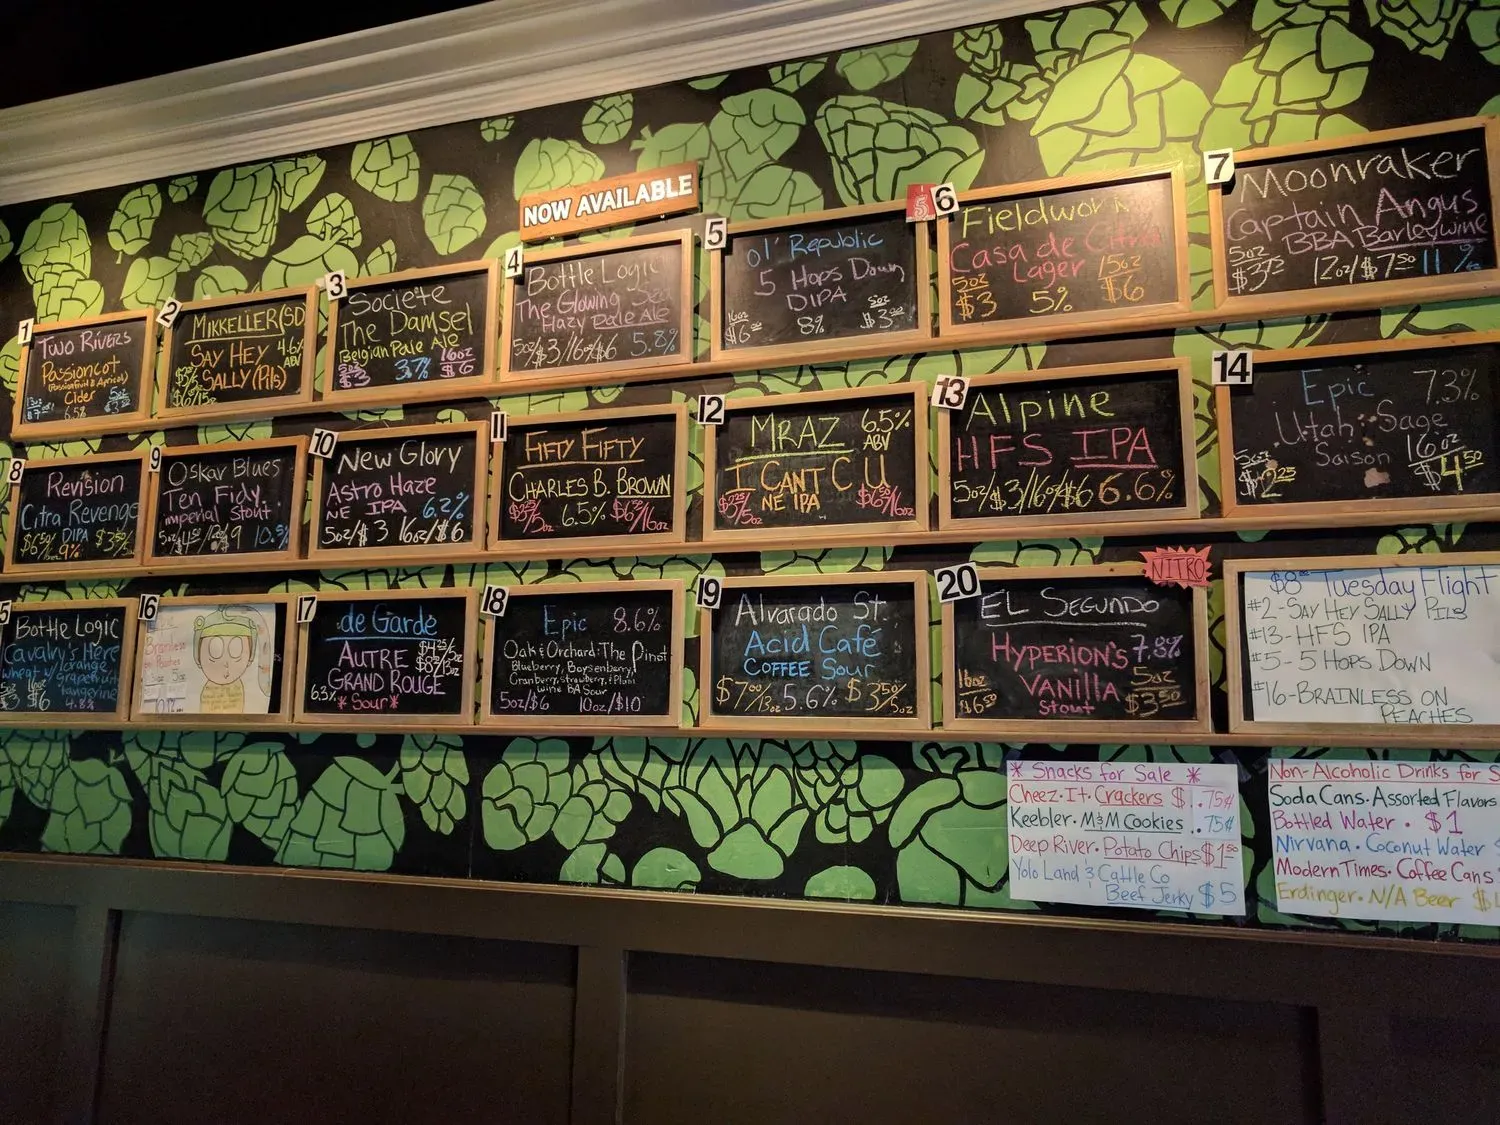 NOW AVAILABLE
1
Two Rivers
Passioncot
(Passionfruit & Apricot)
Cider
6.5%
2
MIKKELLER (SD)
SAY HEY
4.6%
ABV
SALLY (PILS)
3
Societe
The Damsel
Belgian Pale Ale
16oz
$3
$6
4
Bottle Logic
The Glowing Sea
Hazy Pale Ale
5oz/$3/16oz/$6 5.8%
5
Ol' Republic
5 Hops Down
DIPA
8%
5
6
Fieldwork
Casa de Citrus
Lager
5oz
15oz
$3
5%
$6
7
Moonraker
Captain Angus
BBA Barleywine
5oz
12oz/$7.50
11%
8
Revision
Citra Revenge
DIPA
9%
9
Oskar Blues
Ten Fidy
Imperial Stout
10
New Glory
Astro Haze
NE IPA
6.2%
5oz/$3 16oz/$6
11
FIFTY FIFTY
CHARLES B. BROWN
6.5%
12
MRAZ
6.5%
ABV
I CANT C U
NE IPA
13
Alpine
HFS IPA
5oz/$3/16oz/$6 6.6%
14
Epic
7.3%
Utah Sage
Saison
16oz
$2.25
$4.50
Bottle Logic
Cavalry's Here
wheat w/ orange
grapefruit
tangerine
$6
4.8%
16
Brainless
on Peaches
17
de Garde
AUTRE
GRAND ROUGE
6.3%
*Sour*
18
Epic
8.6%
Oak & Orchard: The Pinot
Blueberry, Boysenberry,
Cranberry, Strawberry, & Plum
wine BA Sour
5oz/$6
10oz/$10
19
Alvarado St.
Acid Café
COFFEE SOUR
5.6%
20
NITRO
EL SEGUNDO
HYPERION'S
7.8%
VANILLA
Stout
5oz
16oz
$6.50
$3.50
$8 Tuesday Flight
#2-SAY HEY SALLY PILS
#13-HFS IPA
#5-5 HOPS DOWN
#16-BRAINLESS ON
PEACHES
* Snacks for Sale *
Cheez-It-Crackers $1..75¢
Keebler-M&M Cookies..75¢
Deep River-Potato Chips $1.50
Yolo Land & Cattle Co
Beef Jerky $5
Non-Alcoholic Drinks for S
Soda Cans-Assorted Flavors
Bottled Water - $1
Nirvana-Coconut Water
Modern Times-Coffee Cans
Erdinger-N/A Beer